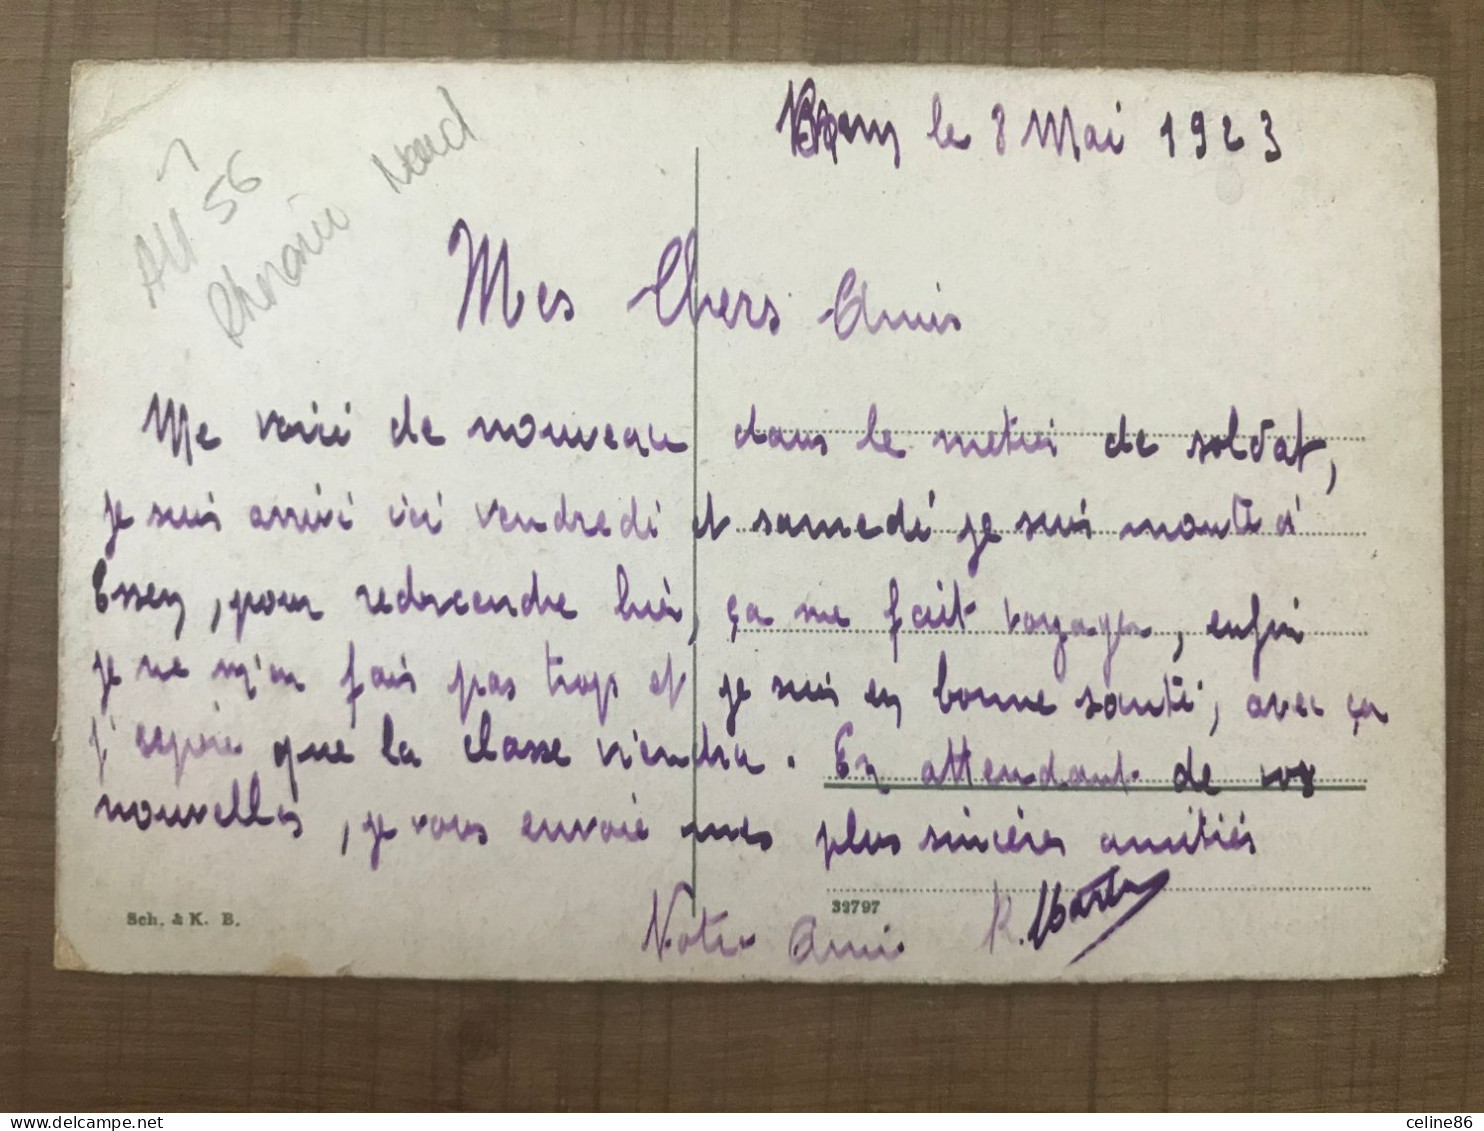 All 56
Rhénanie Nord
le 8 Mai 1923
Mes Chers Amis
Me voici de nouveau dans le metier de soldat,
je suis arrivé ici vendredi et samedi je suis monté à
Essen, pour redescendre hier, ça me fait voyager, enfin
je ne m'en fais pas trop et je suis en bonne santé, avec ça
j'espère que la classe viendra. En attendant de vos
nouvelles, je vous envoie mes plus sincères amitiés
Votre Ami R.
Sch. & K. B.
32797
celine86